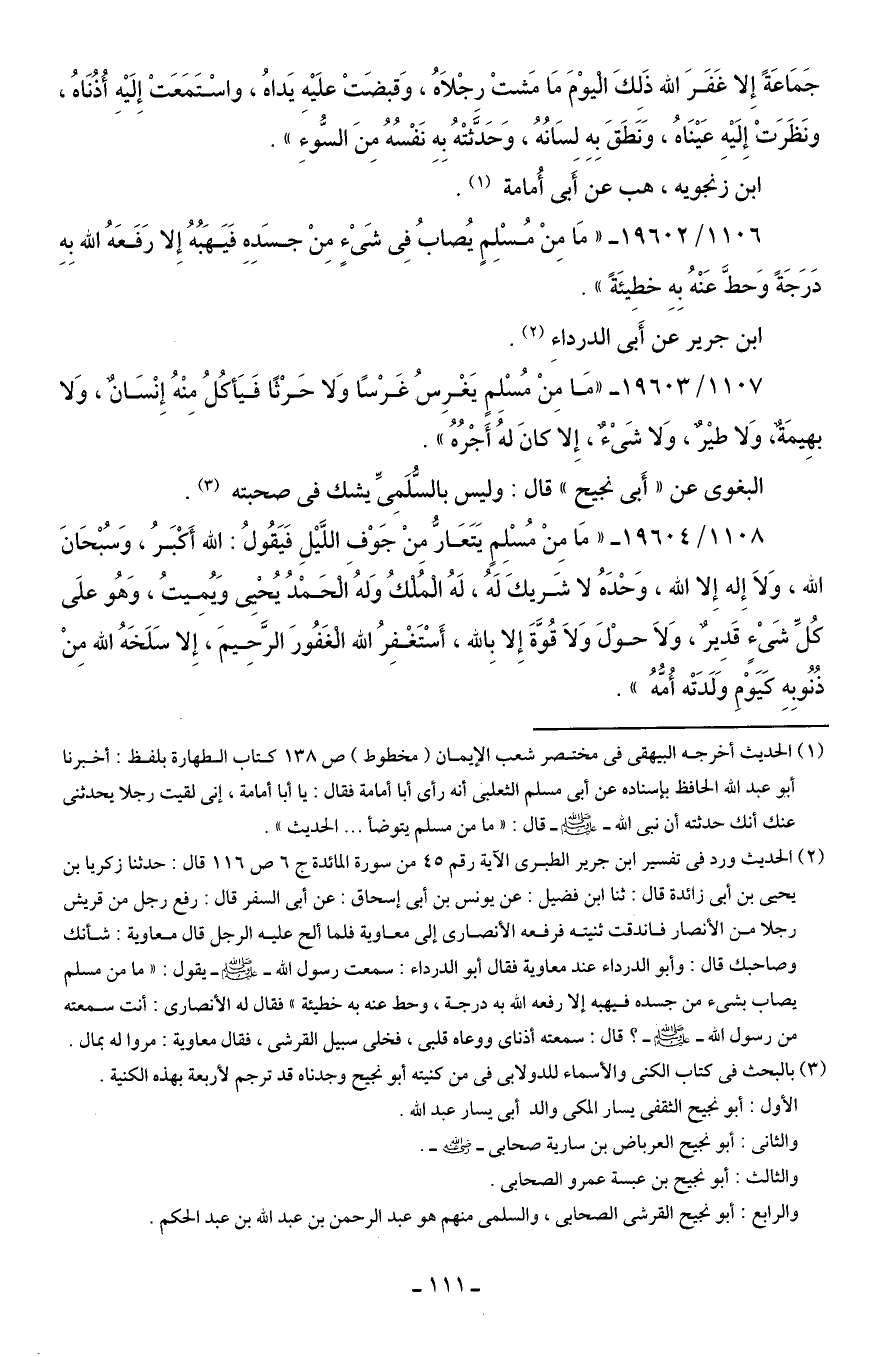 جَمَاعَةً إلا غَفَرَ الله ذَلِكَ الْيوْمَ مَا مَشتْ رِجْلاَهُ ، وَقبضَتْ علَيْهِ يَداهُ ، واسْتَمَعَتْ إِلَيْهِ أُذُنَاهُ ،
ونَظَرَتْ إِلَيْهِ عَيْنَاهُ ، وَنَطَقَ بِهِ لِسَانُهُ ، وَحَدَّثتْهُ بِهِ نَفْسُهُ مِنَ السُّوءِ » .
ابن زنجويه ، هب عن أَبى أُمامة (١) .
١١٠٦/ ١٩٦٠٢ـ « مَا مِنْ مُسْلِمٍ يُصابُ فِى شَىْءٍ مِنْ جسَدِهِ فَيَهَبُهُ إلا رَفَعَهُ الله بِهِ
دَرَجَةً وَحطَّ عَنْهُ بِهِ خطِيئَةً » .
ابن جرير عن أَبى الدرداء (٢) .
١١٠٧/ ١٩٦٠٣ـ «مَا مِنْ مُسْلِمٍ يَغْرِسُ غَرْسًا وَلا حَرْثًا فَيَأكُلُ مِنْهُ إِنْسَانٌ ، وَلا
بهِيمَةٌ، وَلا طيْرٌ ، وَلا شَىْءٌ ، إِلا كانَ لهُ أَجْرُهُ » .
البغوى عن « أَبى نجيح » قال : وليس بالسُّلَمىِّ يشك فى صحبته (٣) .
١١٠٨/ ١٩٦٠٤ـ « مَا مِنْ مُسْلِمٍ يَتَعَارُّ مِنْ جَوْفِ اللَّيْلِ فَيَقُولُ : الله أَكْبَرُ ، وَسُبْحَانَ
الله ، وَلاَ إِله إِلا الله ، وَحْدَهُ لا شَرِيكَ لَهُ ، لَهُ المُلْكُ وَلهُ الْحَمْدُ يُحْيِى ويُمِيتُ ، وَهُو علَى
كُلِّ شَىْءٍ قَدِيرٌ ، وَلاَ حوْلَ وَلاَ قُوَّةَ إِلا بِالله ، أَسْتَغْفِرُ الله الْغَفُورَ الرَّحِيمَ ، إِلا سَلَخَهُ الله مِنْ
ذُنُوبِهِ كَيَوْمِ ولَدَتْهُ أُمُّهُ » .
(١) الحديث أخرجه البيهقى فى مختصر شعب الإيمان ( مخطوط ) ص ١٣٨ كتاب الطهارة بلفظ : أخبرنا
أبو عبد الله الحافظ بإسناده عن أبى مسلم الثعلبى أنه رأى أبا أمامة فقال : يا أبا أمامة ، إنى لقيت رجلا يحدثنى
عنك أنك حدثته أن نبى الله ـ ﷺ ـ قال : « ما من مسلم يتوضأ ... الحديث » .
(٢) الحديث ورد فى تفسير ابن جرير الطبرى الآية رقم ٤٥ من سورة المائدة ج ٦ ص ١١٦ قال : حدثنا زكريا بن
يحيى بن أبى زائدة قال : ثنا ابن فضيل : عن يونس بن أبى إسحاق : عن أبى السفر قال : رفع رجل من قريش
رجلا من الأنصار فاندقت ثنيته فرفعه الأنصارى إلى معاوية فلما ألح عليه الرجل قال معاوية : شأنك
وصاحبك قال : وأبو الدرداء عند معاوية فقال أبو الدرداء : سمعت رسول الله ـ ﷺ ـ يقول : « ما من مسلم
يصاب بشىء من جسده فيهبه إلا رفعه الله به درجة ، وحط عنه به خطيئة » فقال له الأنصارى : أنت سمعته
من رسول الله ـ ﷺ ـ ؟ قال : سمعته أذناى ووعاه قلبى ، فخلى سبيل القرشى ، فقال معاوية : مروا له بمال .
(٣) بالبحث فى كتاب الكنى والأسماء للدولابى فى من كنيته أبو نجيح وجدناه قد ترجم لأربعة بهذه الكنية .
الأول : أبو نجيح الثقفى يسار المكى والد أبى يسار عبد الله .
والثانى : أبو نجيح العرباض بن سارية صحابى ـ رضي الله عنه ـ .
والثالث : أبو نجيح بن عبسة عمرو الصحابى .
والرابع : أبو نجيح القرشى الصحابى ، والسلمى منهم هو عبد الرحمن بن عبد الله بن عبد الحكم .
ـ ١١١ ـ